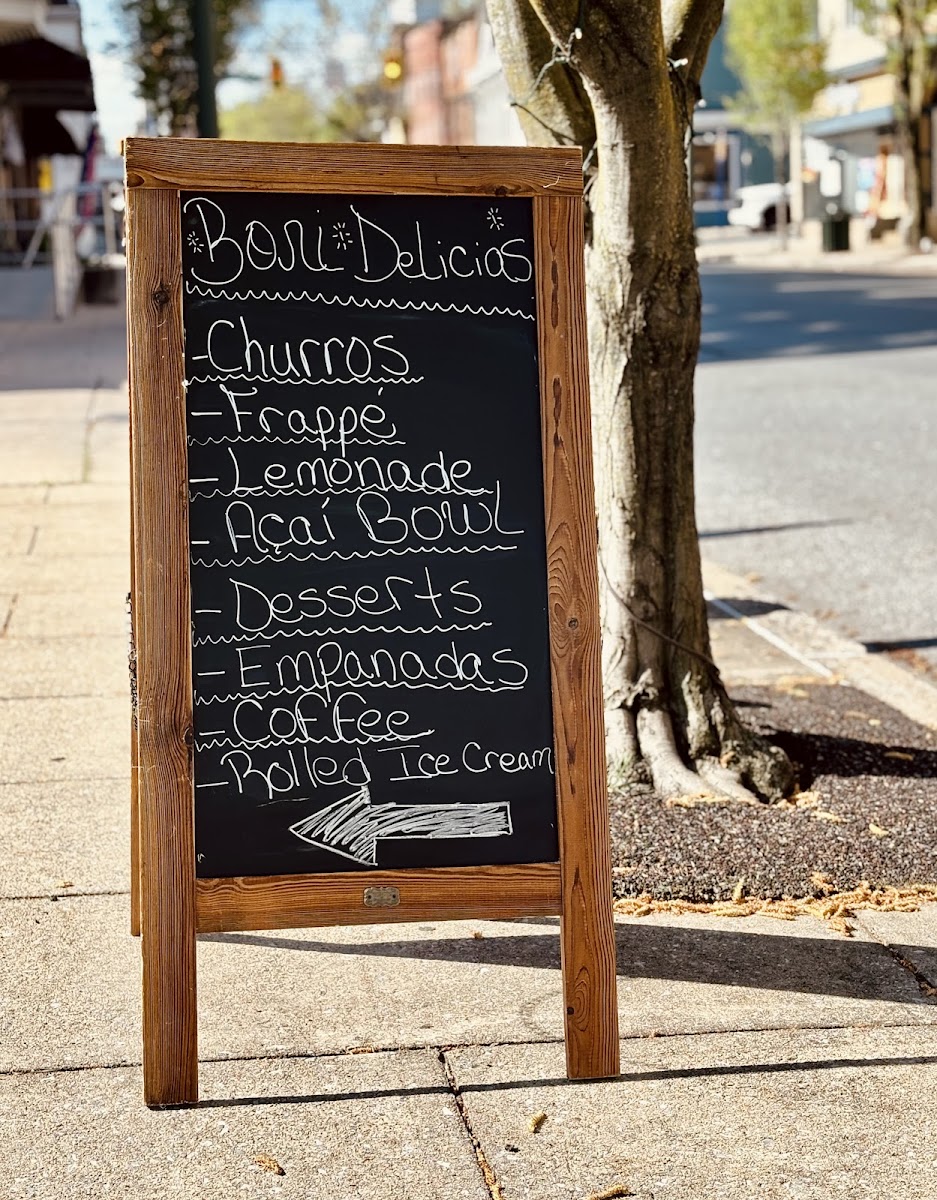 Bori Delicias
-Churros
-Frappé
-Lemonade
-Açaí Bowl
-Desserts
-Empanadas
-Coffee
-Rolled Ice Cream